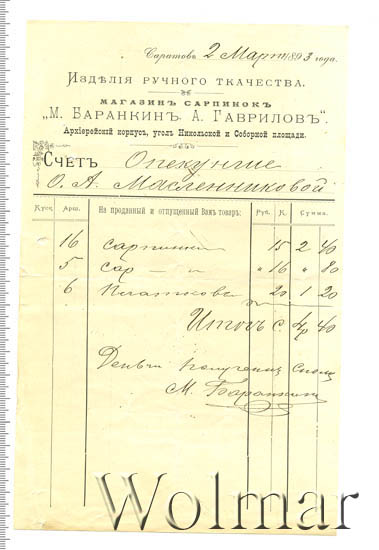 Саратовъ 2 Март 1893 года.
Издѣлія ручного ткачества.
МАГАЗИНЪ САРПИНОКЪ
„М. Баранкинъ А. Гавриловъ“.
Архіерейскій корпусъ, уголъ Никольской и Соборной площади.
Счетъ Опекунше
О. А. Масленниковой
Куск. Арш. На проданный и отпущенный Вамъ товаръ: Руб. К. Сумма.
16 сарпинки 15 2 40
5 сар — и " 16 " 80
6 Платковъ 20 1 20
Итогъ С. 4р 40
Деньги получены Сполна
М. Баранкинъ
Wolmar